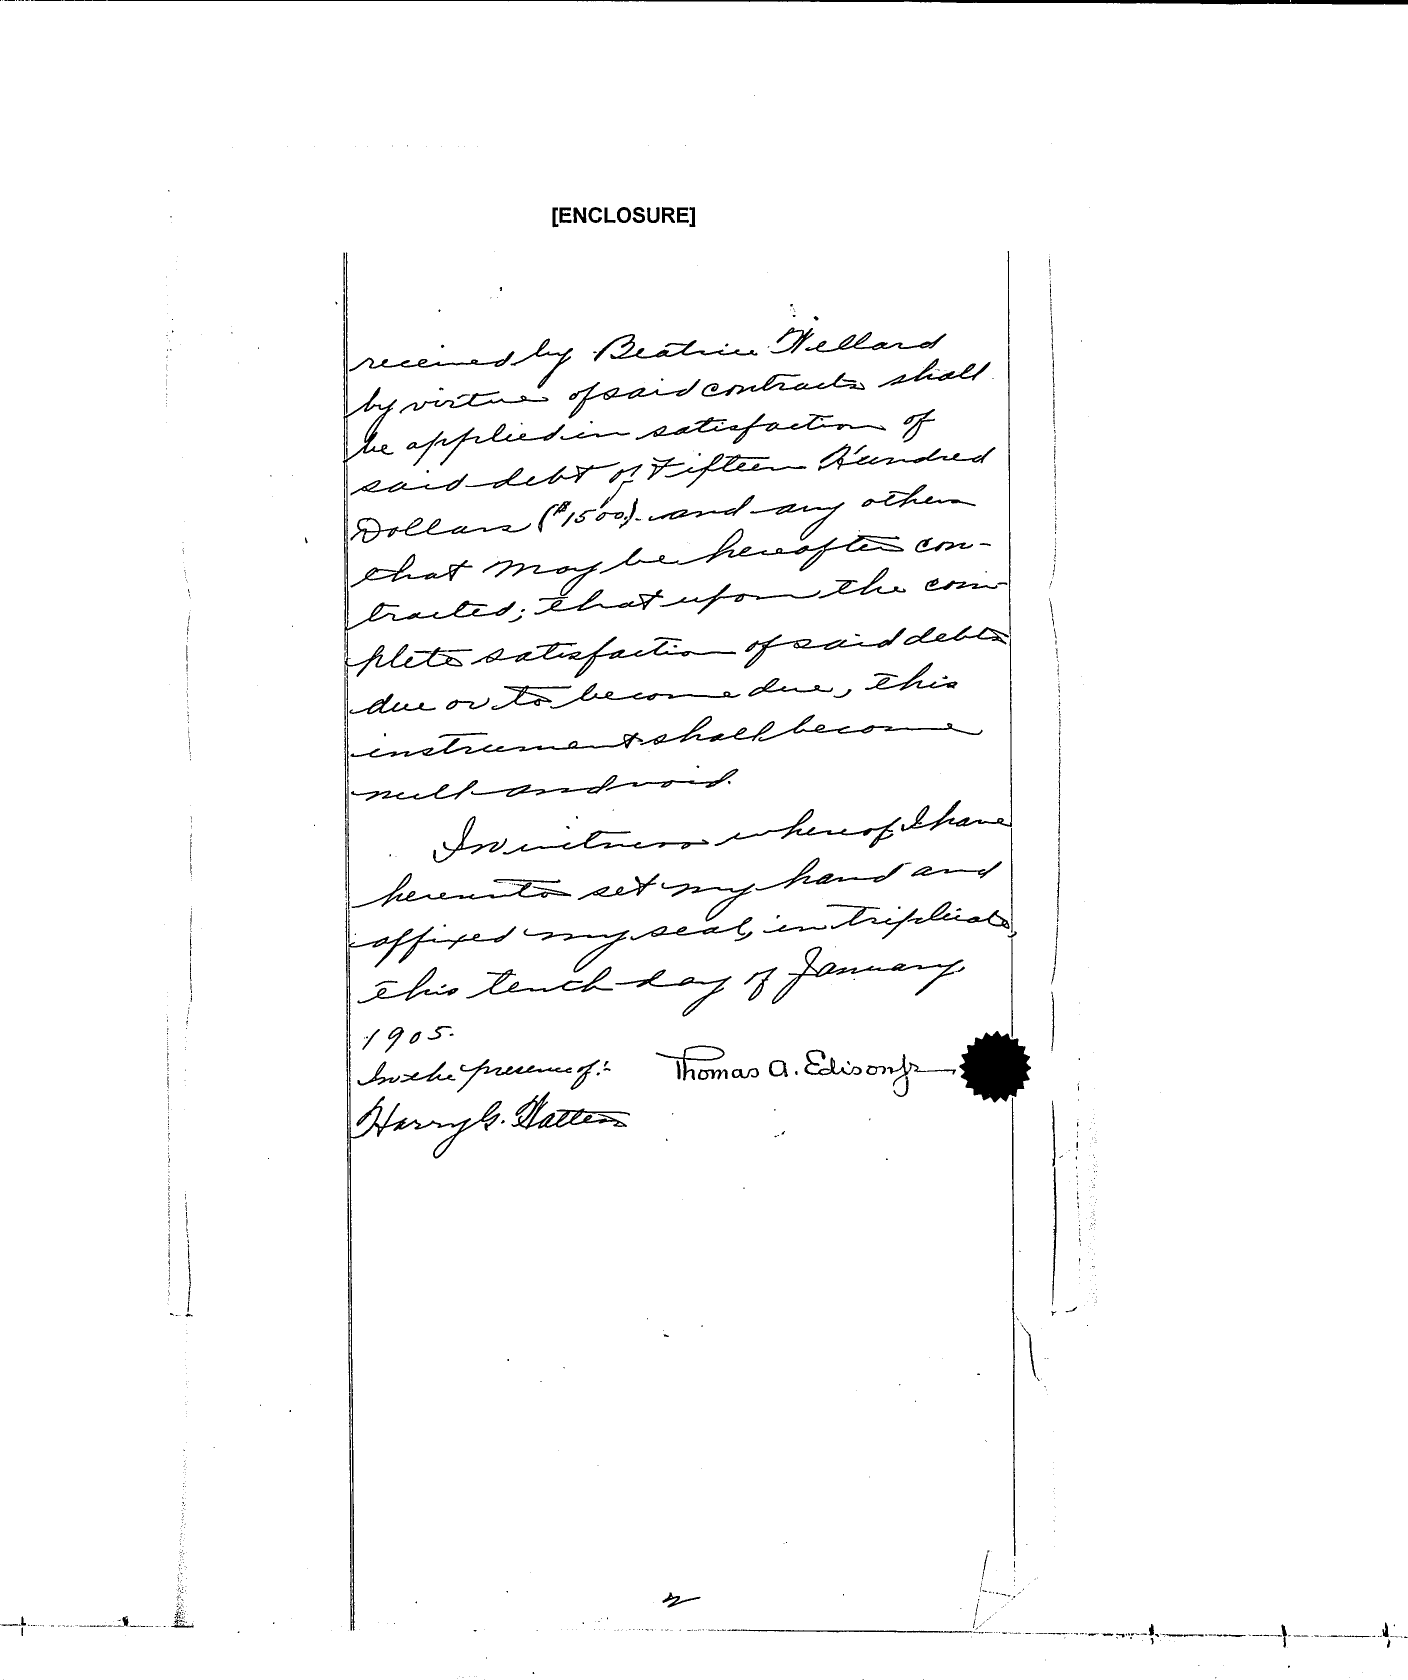 [ENCLOSURE]
received by Beatrice Willard
by virtue of said contracts shall
be applied in satisfaction of
said debt of Fifteen Hundred
Dollars ($1500.) and any others
that may be hereafter con-
tracted; that upon the com-
plete satisfaction of said debts
due or to become due, this
instrument shall become
null and void.
In witness whereof I have
hereunto set my hand and
affixed my seal, in triplicate,
this tenth day of January
1905.
In the presence of:-
Thomas A. Edison Jr
Harry G.